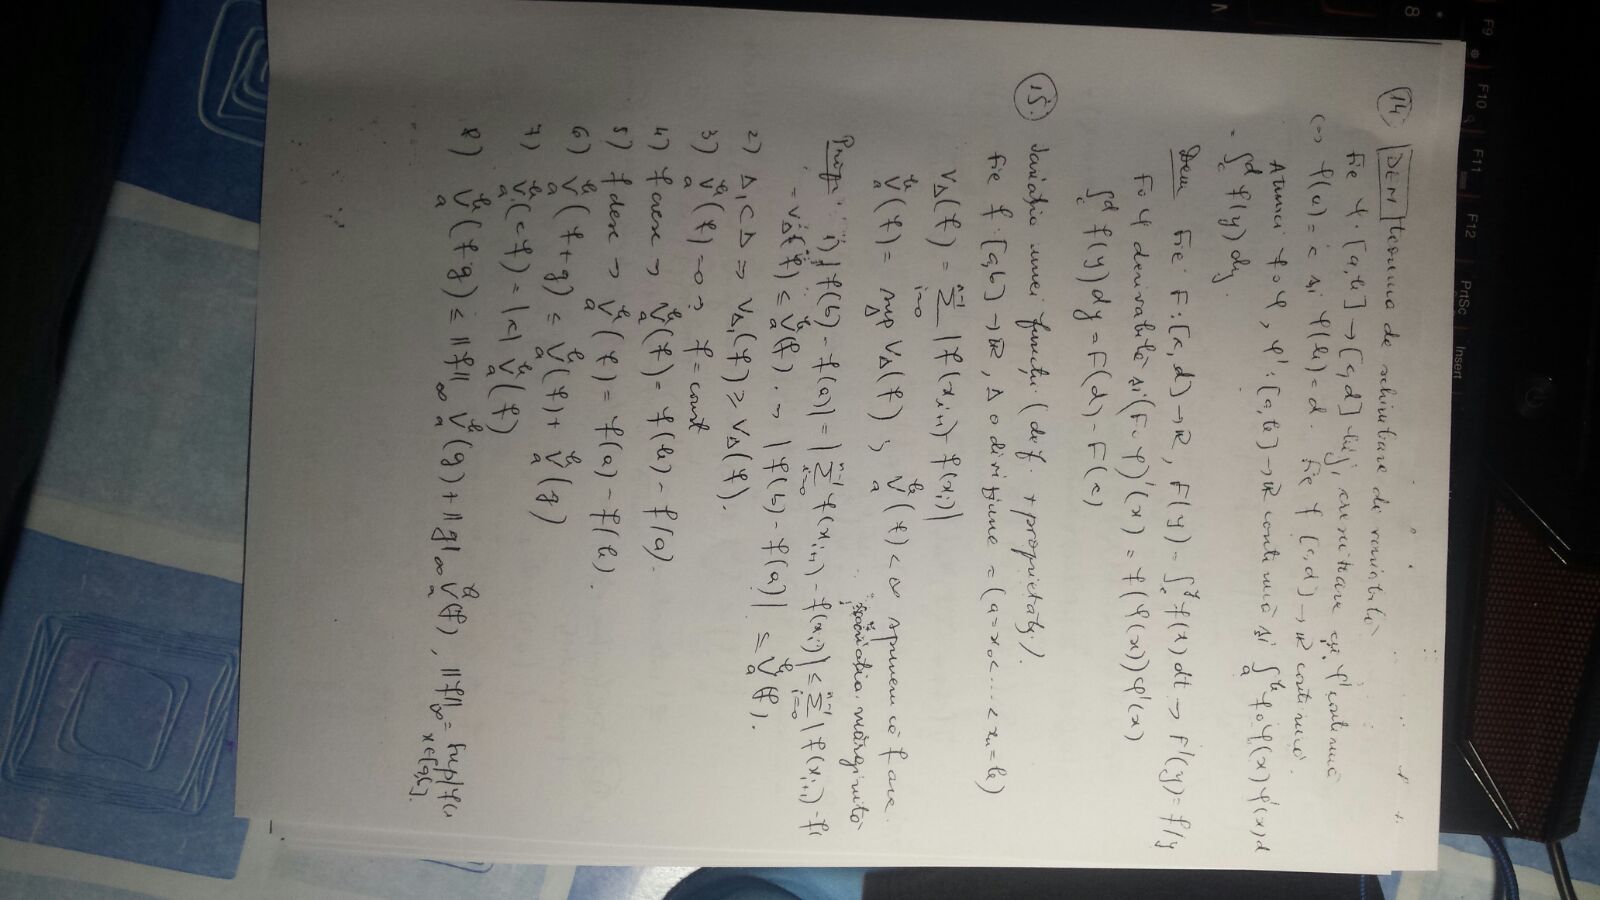 F9 F10 F11 F12 PrtSc Insert
8
M
14. DEM teorema de schimbare de variabilă
Fie φ: [a,b] → [c,d] bij, crescătoare și φ' continuă
(⇔) φ(a) = c și φ(b) = d. Fie f [c,d] → ℝ continuă.
Atunci f∘φ, φ': [a,b] → ℝ continuă și ∫_a^b f∘φ(x) φ'(x) d
= ∫_c^d f(y) dy.
Dem Fie F: [c,d] → ℝ, F(y) = ∫_c^y f(t) dt → F'(y) = f(y
F∘φ derivabilă și (F∘φ)'(x) = f(φ(x)) φ'(x)
∫_c^d f(y) dy = F(d) - F(c)
15. Variația unei funcții (def. + proprietăți).
Fie f: [a,b] → ℝ, Δ o diviziune = (a = x₀ < ... < xₙ = b)
V_Δ(f) = Σ_{i=0}^{n-1} |f(x_{i+1}) - f(x_i)|
V_a^b(f) = sup_Δ V_Δ(f) ; V_a^b(f) < ∞ spunem că f are
variația mărginită
Prop: 1) |f(b) - f(a)| = |Σ_{i=0}^{n-1} f(x_{i+1}) - f(x_i)| ≤ Σ_{i=0}^{n-1} |f(x_{i+1}) - f(
= V_Δ(f) ≤ V_a^b(f). → |f(b) - f(a)| ≤ V_a^b(f).
2) Δ₁ ⊂ Δ ⇒ V_Δ₁(f) ≥ V_Δ(f).
3) V_a^b(f) = 0 → f = const
4) f cresc → V_a^b(f) = f(b) - f(a).
5) f desc → V_a^b(f) = f(a) - f(b).
6) V_a^b(f+g) ≤ V_a^b(f) + V_a^b(g)
7) V_a^b(cf) = |c| V_a^b(f)
8) V_a^b(f·g) ≤ ||f||_∞ V_a^b(g) + ||g||_∞ V_a^b(f), ||f||_∞ = sup_{x∈[a,b]} |f(